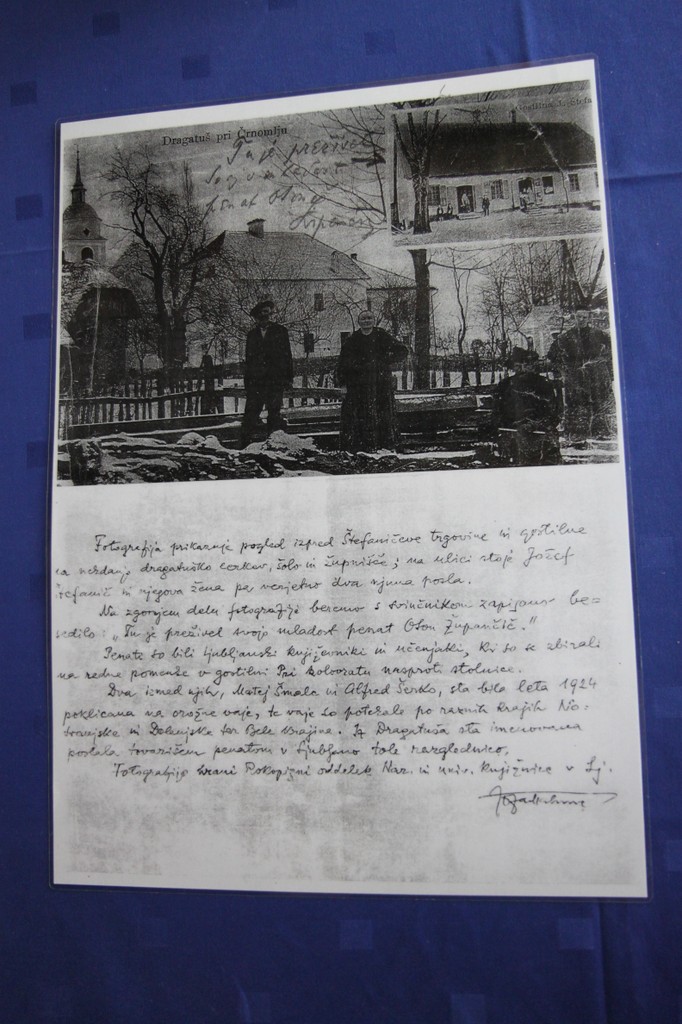 Dragatuš pri Črnomlju
Gostilna J. Štefa
Tu je preživel
svojo mladost
penat Oton
Župančič
Fotografija prikazuje pogled izpred Štefaničeve trgovine in gostilne
na nekdanjo dragatuško cerkev, šolo in župnišče; na ulici stoje Jožef
Štefanič in njegova žena pa verjetno dva njuna posla.
Na zgornjem delu fotografije beremo s svinčnikom zapisano be=
sedilo: „Tu je preživel svojo mladost penat Oton Župančič."
Penate so bili ljubljanski književniki in učenjaki, ki so se zbirali
na redne pomenke v gostilni Pri kolovratu nasproti stolnice.
Dva izmed njih, Matej Šmalc in Alfred Šerko, sta bila leta 1924
poklicana na orožne vaje, te vaje so potekale po raznih krajih No=
tranjske in Dolenjske ter Bele krajine. Iz Dragatuša sta imenovana
poslala tovarišem penatom v Ljubljano tole razglednico.
Fotografijo hrani Rokopisni oddelek Nar. in univ. knjižnice v Lj.